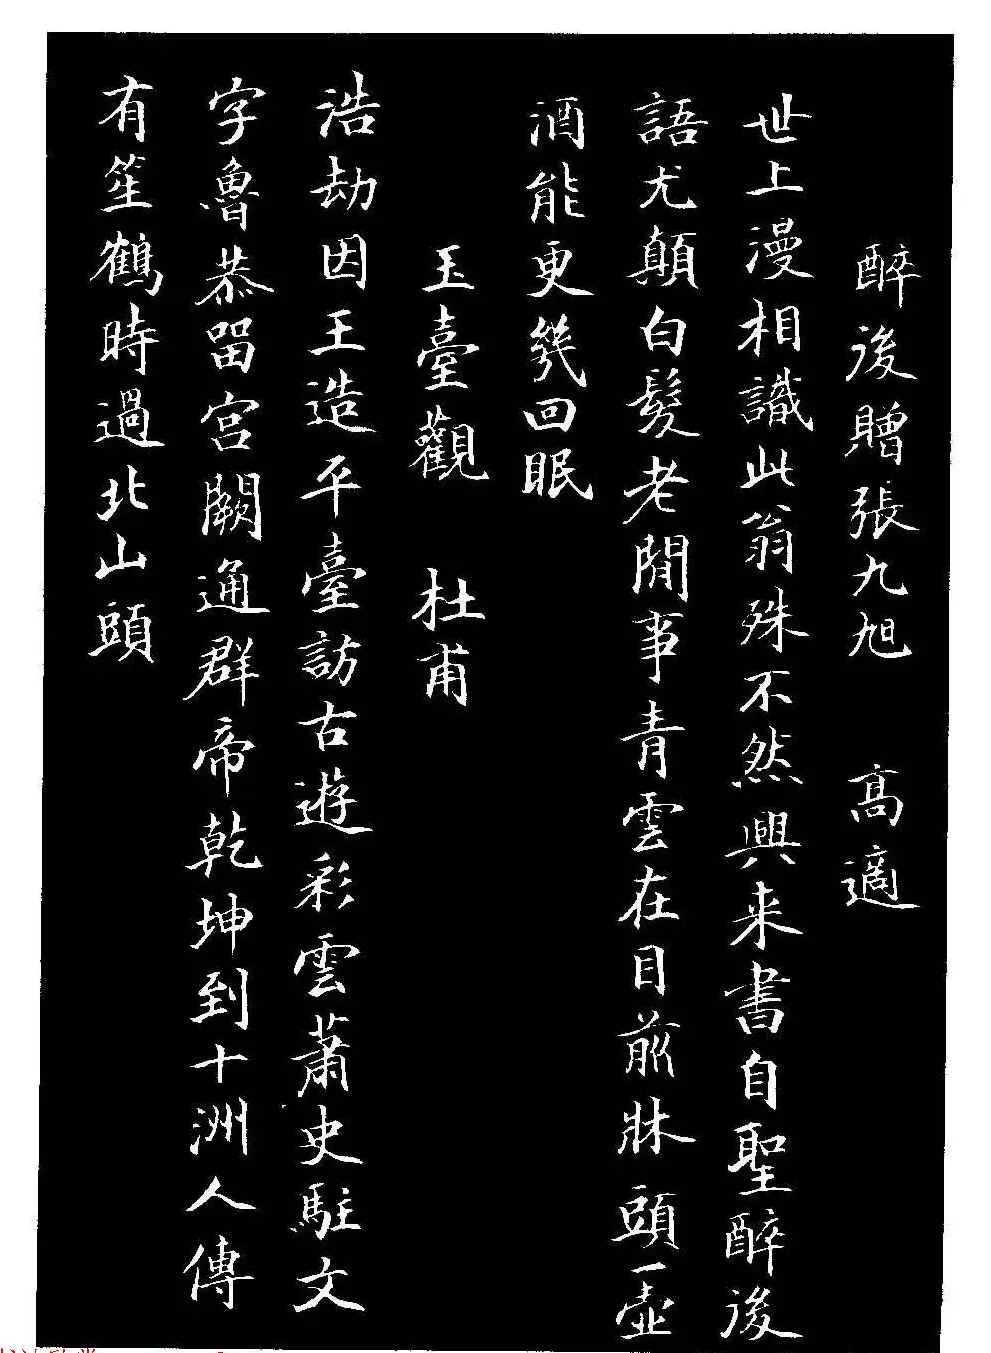 醉後贈張九旭 高適
世上漫相識此翁殊不然興来書自聖醉後
語尤顛白髮老閒事青雲在目前牀頭一壺
酒能更幾回眠
玉臺觀 杜甫
浩劫因王造平臺訪古遊彩雲蕭史駐文
字魯恭留宮闕通群帝乾坤到十洲人傳
有笙鶴時過北山頭